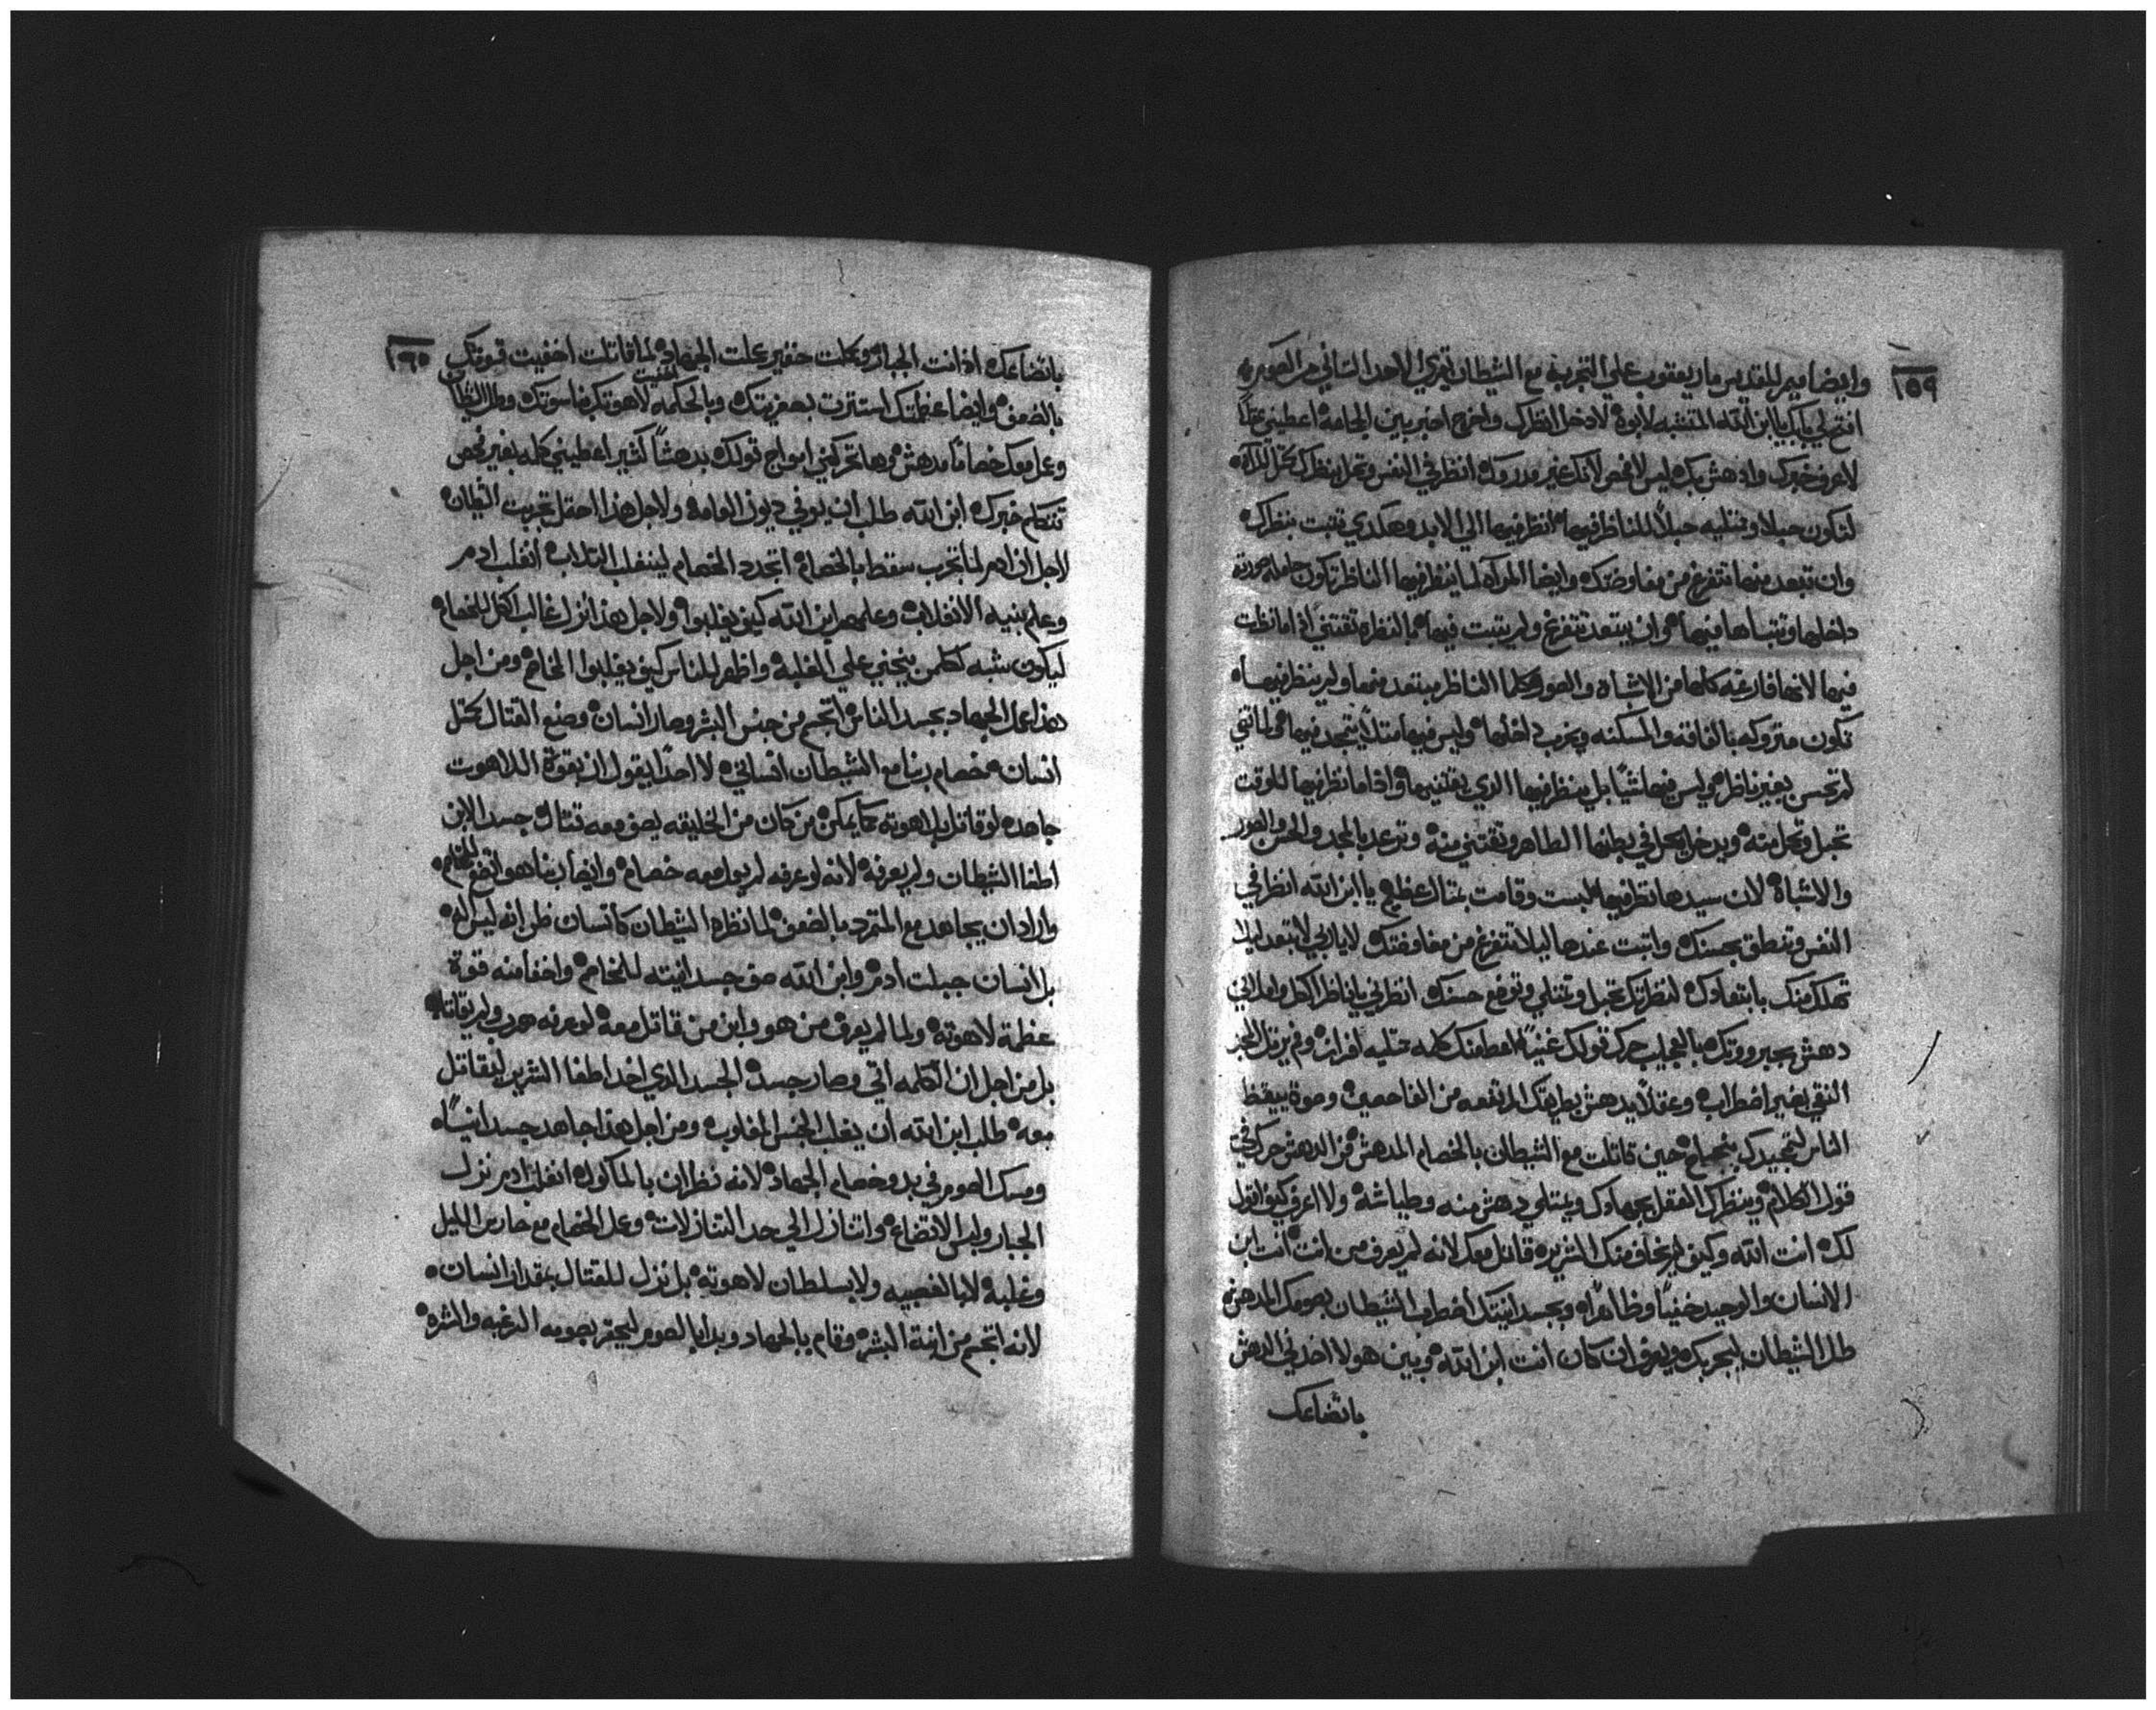 ١٥٩
وايضا ميمر للقديس ماري يعقوب علي التجربة مع الشيطان تقري الاحد الثاني من الصوم
افتح لي بابك يا ابن الله المتشبه لابوه لادخل انظرك واخرج اخبر بين الجماعه اعطيني عقلاً
لاعرف خبرك وادهش بك ليس لافحص لانك غير مدروك انظر في النفس وتحبل بنظرك مثل المراه
لتكون حبلا وممتليه حبلاً للناظر فيها انظر فيها الي الابد وهكدي تتبت بنظرك
وان تبعد منها تتفرغ من مفاوضتك وايضا المراه لما ينظر فيها الناظر تكون حامله صورته
داخلها وتتباها فيها وان يبتعد تتفرغ ولم يتبت فيها بالنظره تقتني اذا ما نظرت
فيها لانها فارغه كلها من الاشباه والصور وكلما الناظر يبتعد منها ولم ينظر فيها
تكون متروكه بالفاقه والمسكنه ويخرب داخلها وليس فيها متلاً يتمجد فيها
لم تحسن بغير ناظر وليس فيها شيًا بل ينظر فيها الدي يقتنيها واذا ما نظر فيها للوقت
تحبل وتحل منه ويدخل يحل في بطنها الطاهر وتقتني منه وتوعد بالمجد والحسن والصور
والاشباه لان سيدها نظر فيها لبست وقامت بمتال عظيم يا ابن الله انظر في
النفس وتنطق بحسنك واتبت عندها ليلا تتفرغ من مفاوضتك لا يا ربي لا تبتعد ليلا
تهلك منك بابتعادك لنظرتك تحبل وتمتلي وتوضع حسنك انظرني يا ناظر الكل واملاني
دهش بجبروتك بالعجايب حرك قولك غنيًا اعط منك كلمه ممتليه افراز وفم يرتل المجد
النقي بغير اضطراب وعقلاً يدهش بطريقتك المرتفعه من الفاحصين وصوة ييقظ
الناس لتمجيدك بتجماع حين قاتلت مع الشيطان بالخصام المدهش فن الدهش حركني
قول الكلام وينظرك العقل بجهادك ويمتلي دهش منه وطياشه ولا اعرف كيف اقول
لك انت الله وكيف لم يخاف منك الشرير قاتل معك لانه لم يعرف من انت انت ابن
الانسان والوحيد خفيًا وظاهرًا وبجسدانيتك اضطرب الشيطان بصومك المدهش
طلب الشيطان ليجربك ويعرف ان كان انت ابن الله وبين هولا اخدني الدهش
باتضاعك
١٦٠
باتضاعك اذ انت الجبار وبكلت حقير عملت الجهاد لما قاتلت اخفيت قوتك
بالضعف وايضا عظمتك استترت بهزيمتك وبالحكمه اخفيت لاهوتك بناسوتك وطلب الشيطان
وعمل معك خصامًا مدهش وها تحركني امواج قولك بدهشًا كثير اعطيني كلمه بغير فحص
تتكلم خبرك ابن الله طلب ان يوفي ديون العامه ولاجل هذا احتمل تجربت الشيطان
لاجل ان ادم لما تجرب سقط بالخصام اتجدد الخصام لينغلب التلاب انغلب ادم
وعلم بنيه الانغلاب وعلمهم ابن الله كيف يغلبوا ولاجل هذا نزل غالب الكل للخصام
ليكون شبه لكلمن ينجني علي الغلبة واظهر للناس كيف يغلبوا الخاصم ومن اجل
هذا عمل الجهاد بجسد الناس اتجسم من جنس البشر وصار انسان وصنع القتال كمتل
انسان خصام ربنا مع الشيطان انساني لا احدًا يقول ان بقوة اللاهوت
جاهد لو قاتل بلاهوته ما يمكن من كان من الخليقه يصف معه قتال جسد الابن
اطغا الشيطان ولم يعرفه لانه لو عرفه لم يعمل معه خصام وايضا ربنا هو اتضع للخصام
واراد ان يجاهد مع المتمرد بالضعف لما نظره الشيطان كانسان ظن انه ليس اله
بل انسان جبلت ادم وابن الله صف جسدانيته للخاصم واخفا منه قوة
عظمة لاهوته ولما لم يعرف من هو وابن من قاتل معه لو عرفه هرب ولم يقاتل
بل من اجل ان الكلمه اتي وصار جسد الجسد الدي اخد اطغا الشرير ليتقاتل
معه طلب ابن الله ان يغلب الجنس المغلوب ومن اجل هذا جاهد جسدانيًا
ومسك الصوم في بدو خصام الجهاد لانه نظر ان بالماكوله انغلب ادم نزل
الجبار ولبس الاتضاع واتنازل الي حد التنازلات وعمل الخصام مع حارس الليل
وغلبه لا بالغصبيه ولا بسلطان لاهوته بل نزل للقتال بمقدار انسان
لانه اتجسم من ابنة البشر وقام بالجهاد وبدا بالصوم ليحقر بصومه الرغبه والشره